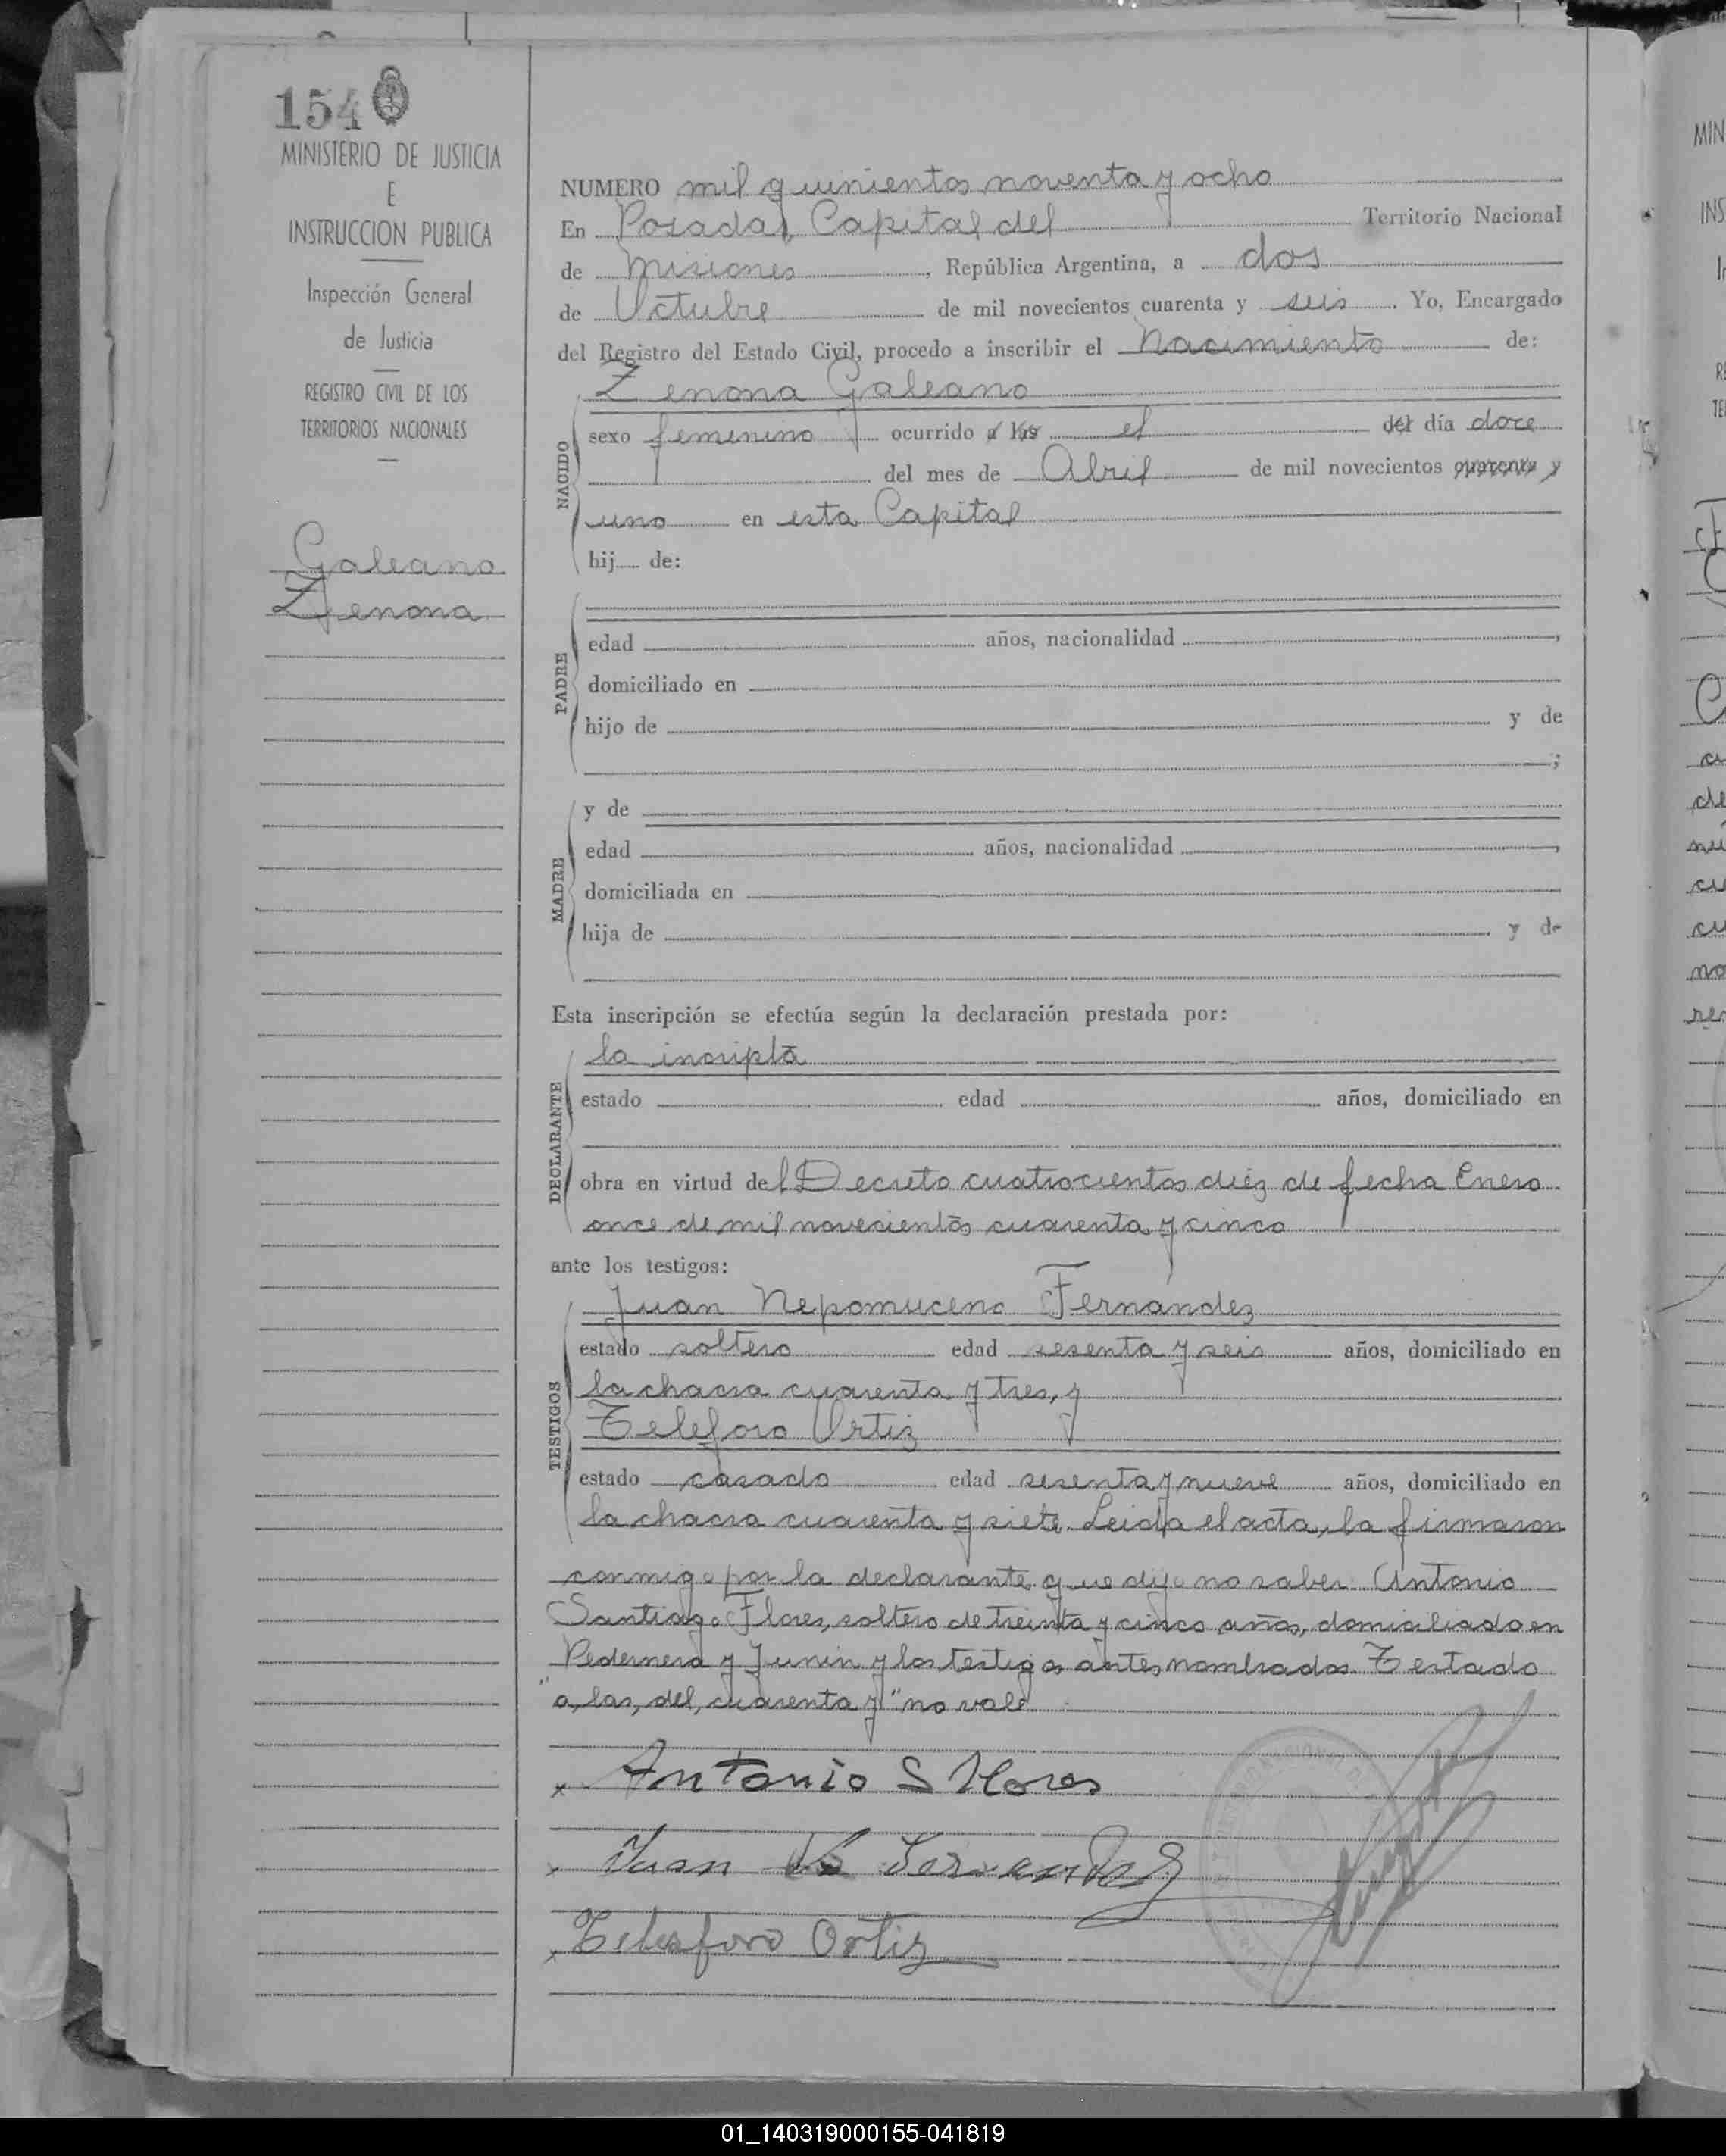 154
MINISTERIO DE JUSTICIA
E
INSTRUCCION PUBLICA
Inspección General
de Justicia
REGISTRO CIVIL DE LOS
TERRITORIOS NACIONALES
Galeano
Zenona
NUMERO mil quinientos noventa y ocho
En Posadas, Capital del Territorio Nacional
de Misiones, República Argentina, a dos
de Octubre de mil novecientos cuarenta y seis. Yo, Encargado
del Registro del Estado Civil, procedo a inscribir el Nacimiento de:
Zenona Galeano
NACIDO
sexo femenino ocurrido a las el del día doce
del mes de Abril de mil novecientos cuarenta y
uno en esta Capital
hij de:
PADRE
edad años, nacionalidad ,
domiciliado en
hijo de y de
;
MADRE
y de
edad años, nacionalidad ,
domiciliada en
hija de y de
Esta inscripción se efectúa según la declaración prestada por:
DECLARANTE
la inscripta
estado edad años, domiciliado en
obra en virtud del Decreto cuatrocientos diez de fecha Enero
once de mil novecientos cuarenta y cinco
ante los testigos:
TESTIGOS
Juan Nepomuceno Fernandez
estado soltero edad sesenta y seis años, domiciliado en
la chacra cuarenta y tres, y
Telesforo Ortiz
estado casado edad sesenta y nueve años, domiciliado en
la chacra cuarenta y siete. Leida el acta, la firmaron
conmigo por la declarante que dijo no saber Antonio
Santiago Flores, soltero de treinta y cinco años, domiciliado en
Pedernera y Junin y los testigos antes nombrados. Testado
"a, las, del, cuarenta y" no vale
x Antonio S Flores
x Juan N Fernandez
x Telesforo Ortiz
MIN
INS
01_140319000155-041819